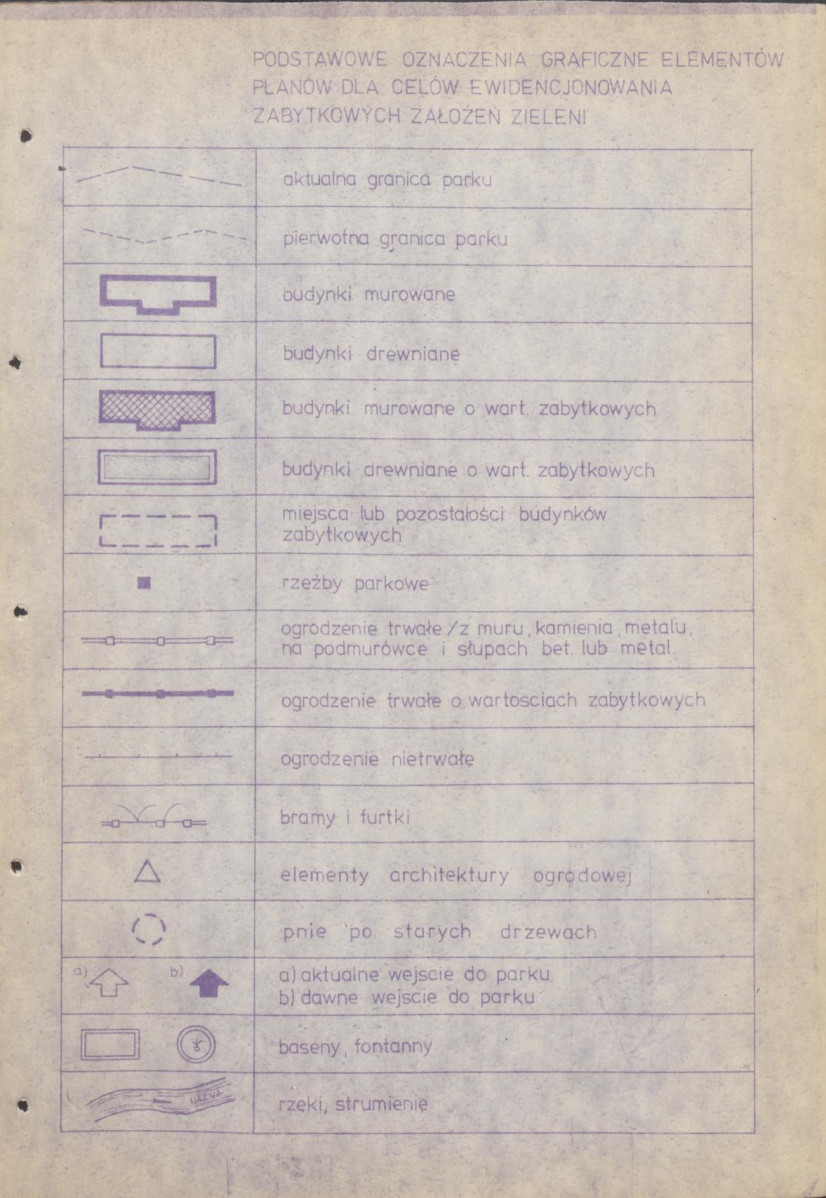 PODSTAWOWE OZNACZENIA GRAFICZNE ELEMENTÓW
PLANÓW DLA CELÓW EWIDENCJONOWANIA
ZABYTKOWYCH ZAŁOŻEŃ ZIELENI
aktualna granica parku
pierwotna granica parku
budynki murowane
budynki drewniane
budynki murowane o wart. zabytkowych
budynki drewniane o wart. zabytkowych
miejsca lub pozostałości budynków
zabytkowych
rzeźby parkowe
ogrodzenie trwałe /z muru, kamienia, metalu,
na podmurówce i słupach bet. lub metal.
ogrodzenie trwałe o wartosciach zabytkowych
ogrodzenie nietrwałe
bramy i furtki
elementy architektury ogrodowej
pnie po starych drzewach
a) b)
a) aktualne wejscie do parku
b) dawne wejscie do parku
baseny, fontanny
NAZWA
rzeki, strumienie